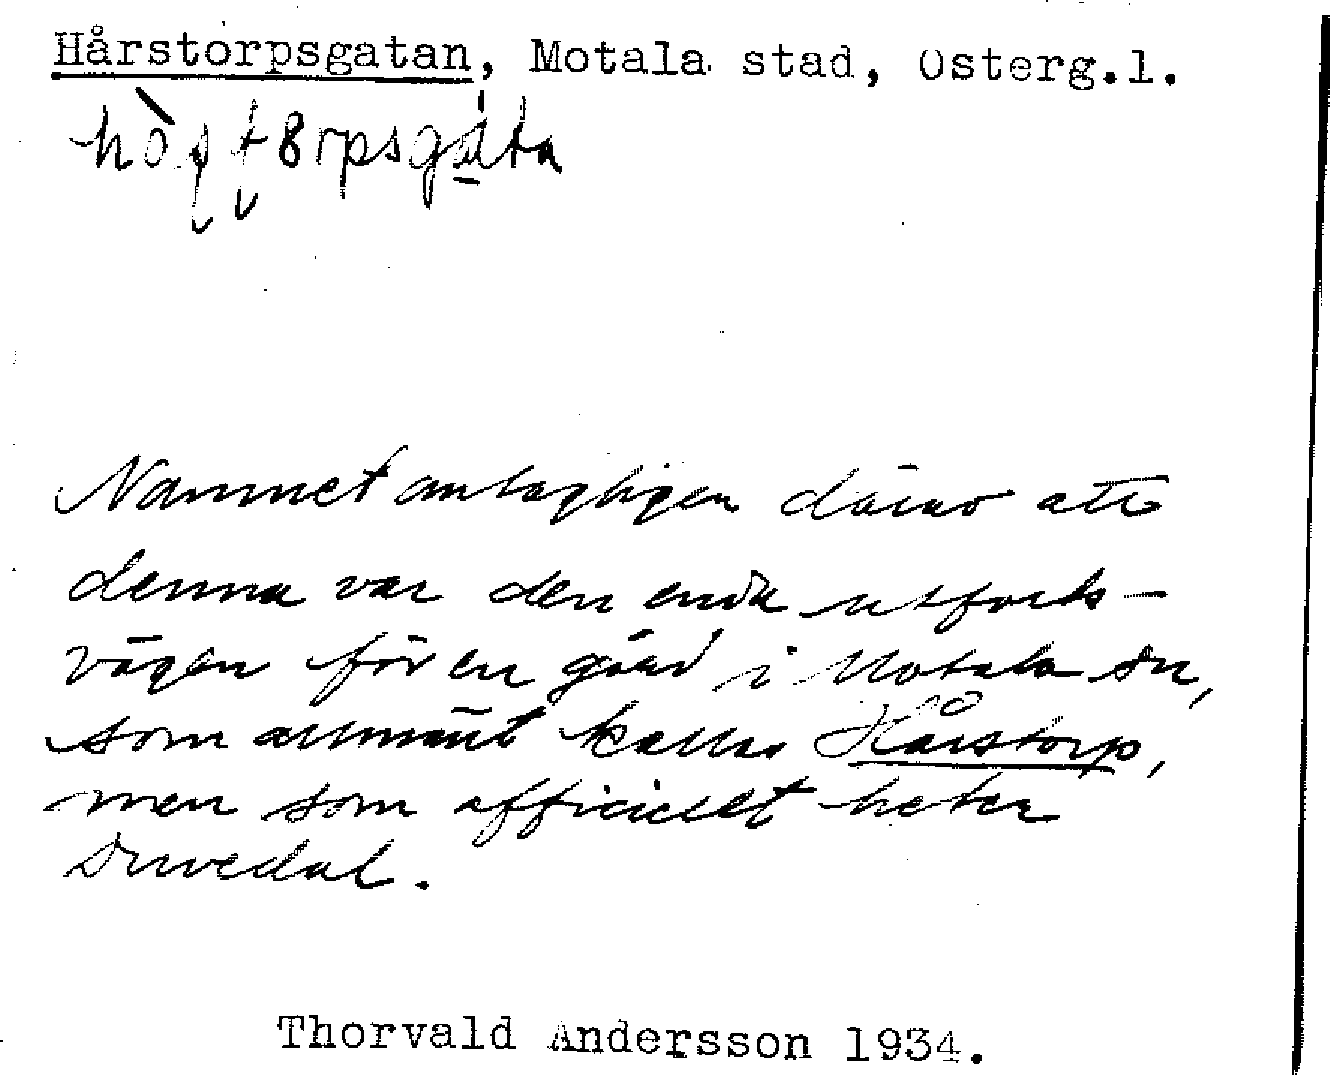 Hårstorpsgatan, Motala stad, Österg.l.
Namnet antagligen därav att
denna var den enda utfarts-
vägen för en gård i Motala sn,
som allmänt kallas Hårstorp,
men som officiellt heter
Duvedal.
Thorvald Andersson 1934.